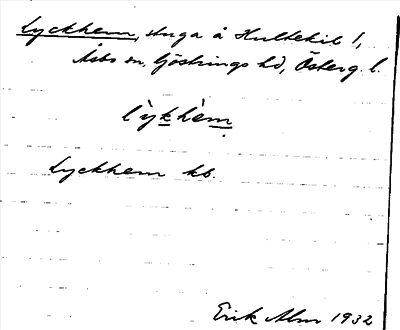 Lyckhem, stuga å Hultekil 1,
Åsbo sn, Göstrings hd, Österg. l.
lỳkhèm
Lyckhem kb.
Erik Alm 1932